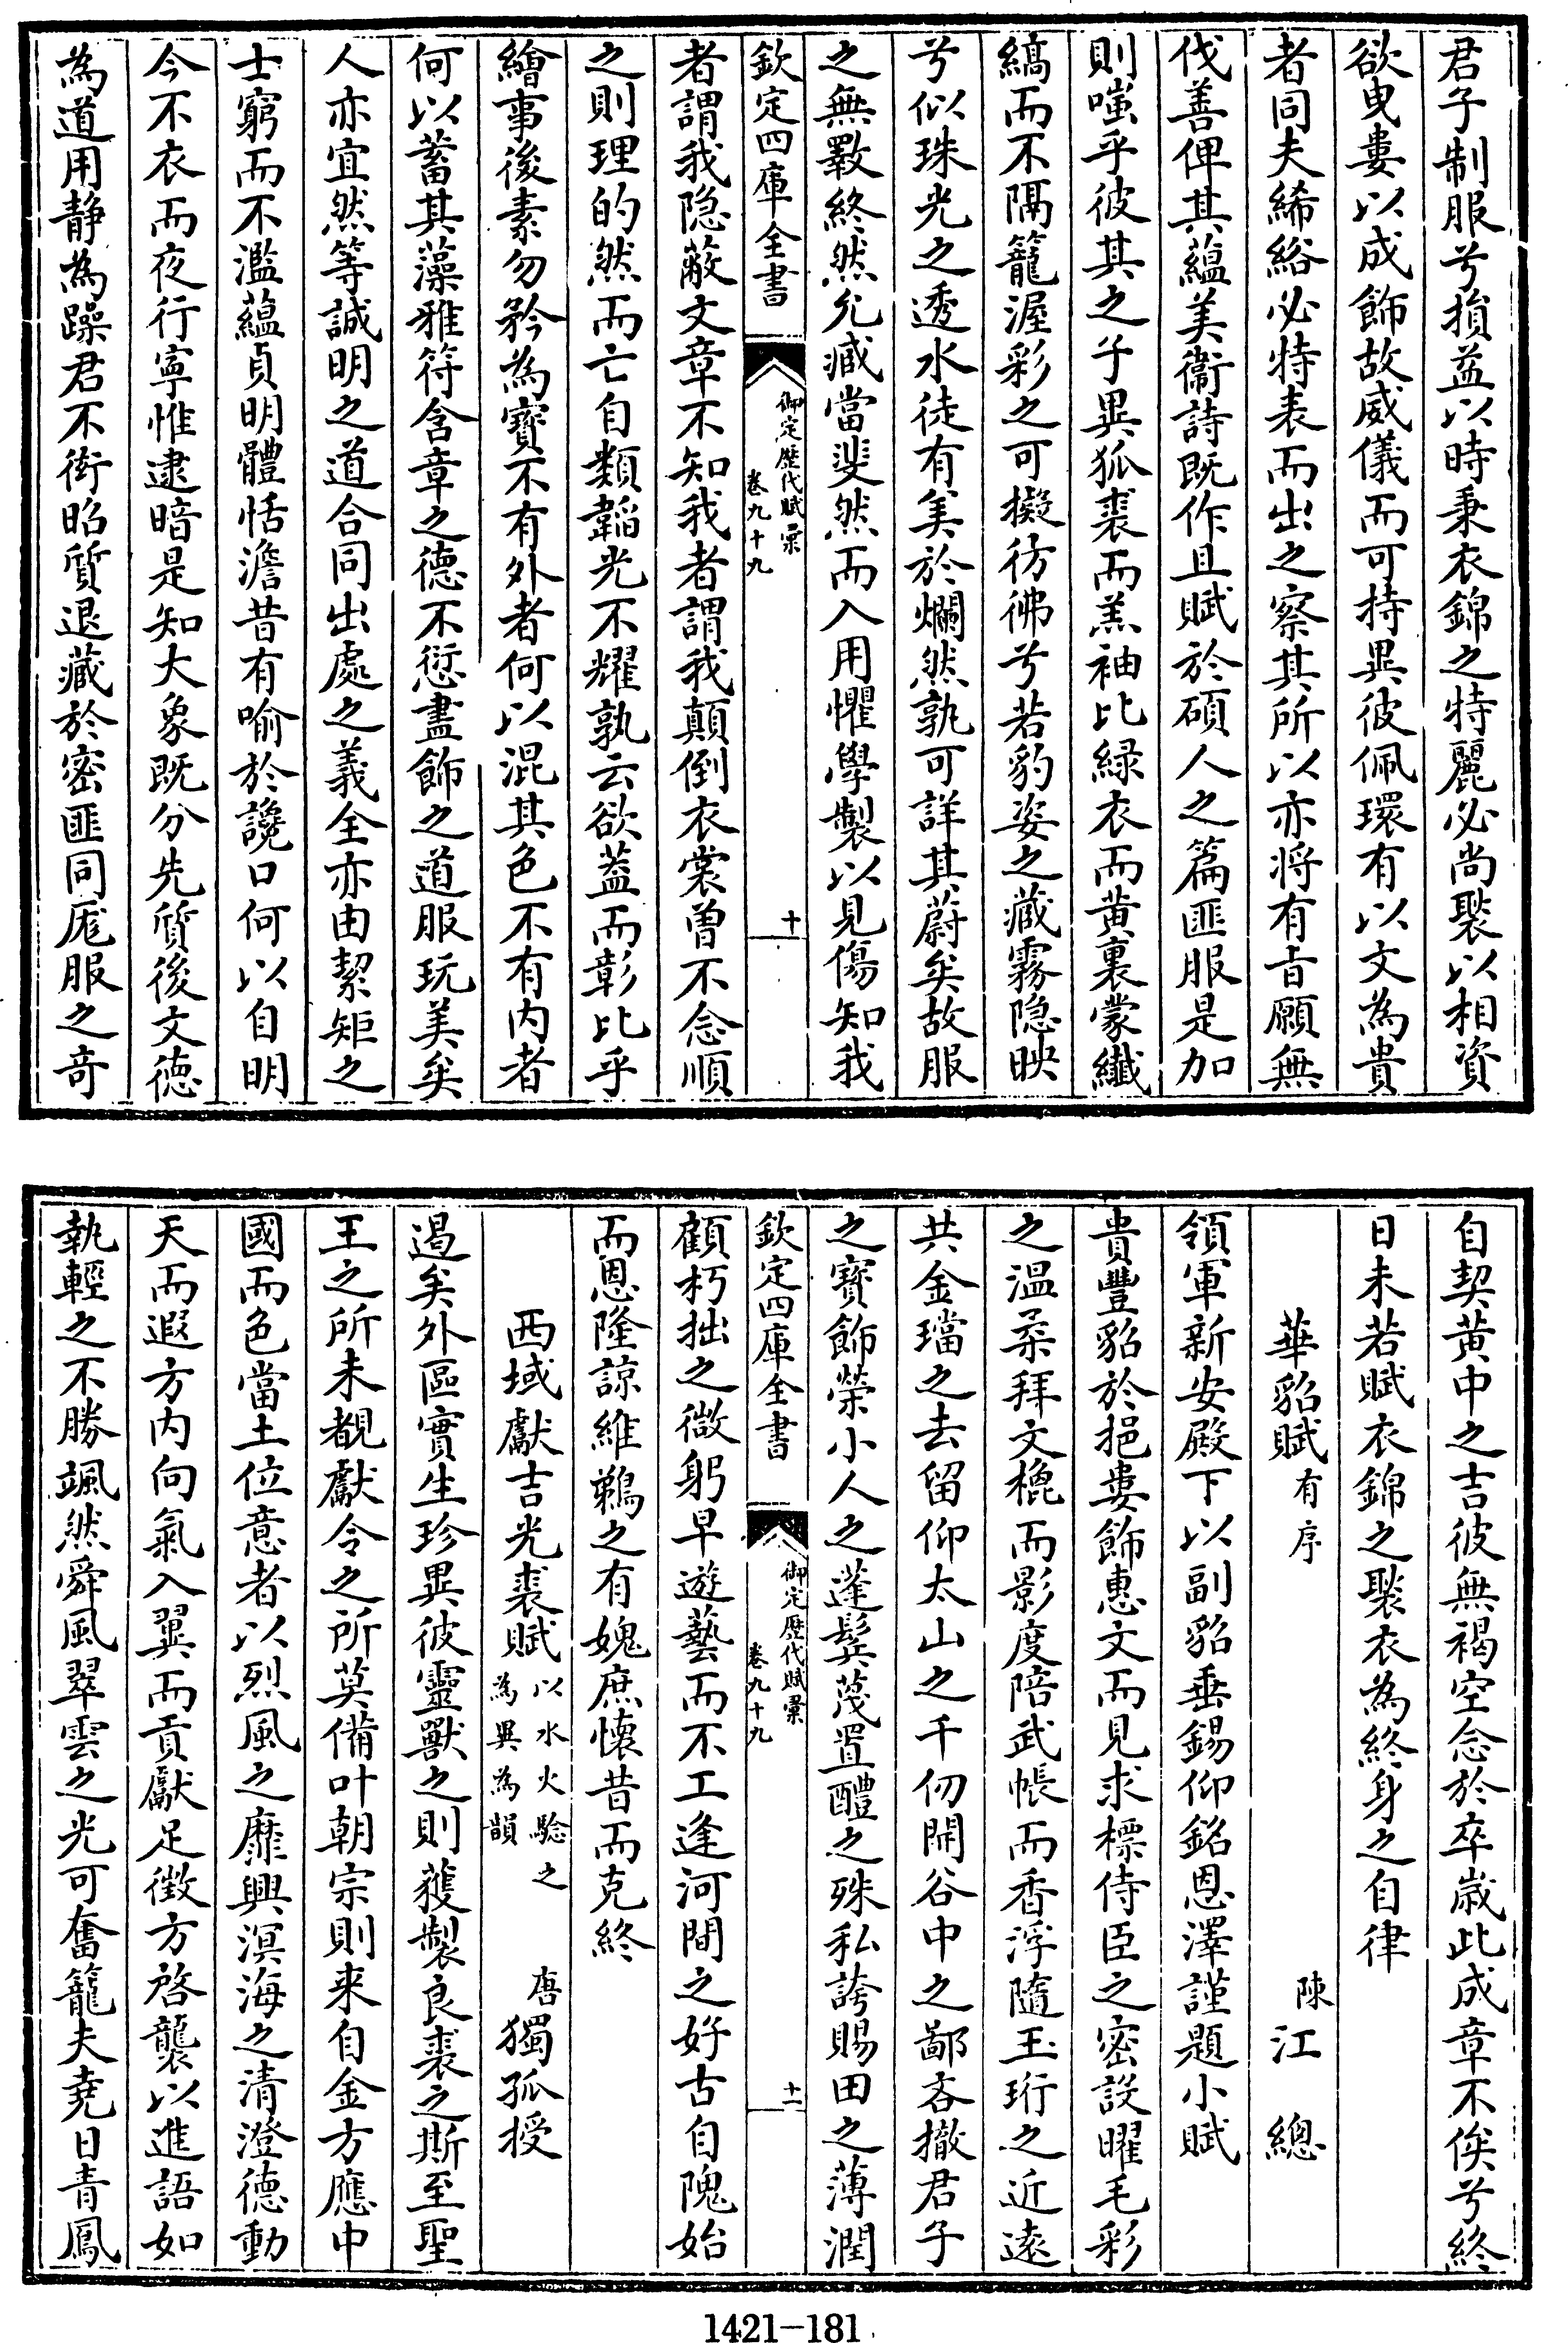 君子制服兮損益以時秉衣錦之特麗必尚褧以相資
欲曳婁以成飾故威儀而可持異彼佩環有以文為貴
者同夫絺綌必特表而出之察其所以亦将有㫖願無
伐善俾其蘊美衞詩既作且賦於碩人之篇匪服是加
則嗤乎彼其之子異狐裘而羔袖比緑衣而黄裏蒙纖
縞而不隔籠渥彩之可擬彷彿兮若豹姿之藏霧隐映
兮似珠光之透水徒有美於爛然孰可詳其蔚矣故服
之無斁終然允臧當斐然而入用懼學製以見傷知我
欽定四庫全書
御定歴代賦彚
卷九十九
十
者謂我隐蔽文章不知我者謂我顛倒衣裳曽不念順
之則理的然而亡自類韜光不耀孰云欲葢而彰比乎
繪事後素勿矜為寳不有外者何以混其色不有内者
何以蓄其藻雅符含章之徳不愆盡飾之道服玩美矣
人亦宜然等誠明之道合同出處之義全亦由絜矩之
士窮而不濫蘊貞明體恬澹昔有喻於讒口何以自明
今不衣而夜行寧惟逮暗是知大象既分先質後文徳
為道用静為躁君不衒昭質退藏於密匪同厖服之竒
自契黄中之吉彼無褐空念於卒嵗此成章不俟兮終
日未若賦衣錦之褧衣為終身之自律
華貂賦有序 陳江總
領軍新安殿下以副貂垂錫仰銘恩澤謹題小賦
貴豐貂於挹婁飾惠文而見求標侍臣之密設曜毛彩
之温柔拜文槐而影度陪武帳而香浮隨玉珩之近遠
共金璫之去留仰太山之千仞開谷中之鄙吝撤君子
之寳飾榮小人之蓬髩蔑置醴之殊私誇賜田之薄潤
欽定四庫全書
御定歴代賦彚
卷九十九
十一
顧朽拙之微躬早遊藝而不工逢河間之好古自隗始
而恩隆諒維鵜之有媿庶懷昔而克終
西域獻吉光裘賦以水火驗之為異為韻 唐獨孤授
逷矣外區實生珍異彼靈獸之則獲製良裘之斯至聖
王之所未覩獻令之所莫備叶朝宗則来自金方應中
國而色當土位意者以烈風之靡興溟海之清澄德動
天而遐方内向氣入翼而貢獻足徴方啓襲以進語如
執輕之不勝颯然舜風翠雲之光可奮籠夫堯日青鳳
1421-181